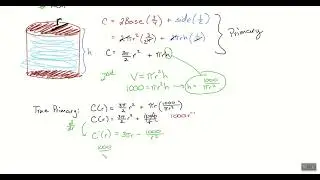 r
C = 2Base(3/4) + side(1/2)
Primary
= 2πr²(3/4) + 2πrh(1/2)
h
C = 3π/2 r² + πrh
goal
V = πr²h
1000 = πr²h → h = 1000/πr²
True Primary: C(r) = 3π/2 r² + πr(1000/πr²)
C(r) = 3π/2 r² + 1000/r
1000r⁻¹
C'(r) = 3πr - 1000/r²
1000